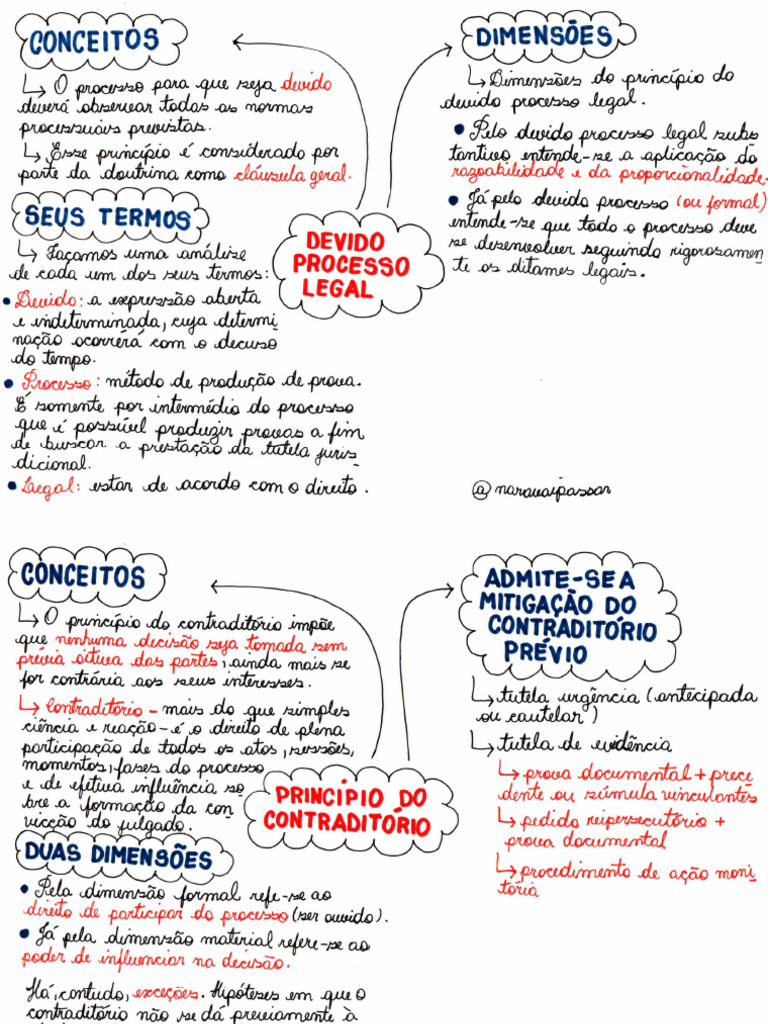 CONCEITOS
O processo para que seja devido
deverá observar todas as normas
processuais previstas.
Esse princípio é considerado por
parte da doutrina como cláusula geral.
SEUS TERMOS
Façamos uma análise
de cada um dos seus termos:
Devido: a expressão aberta
e indeterminada, cuja determi
nação ocorrerá com o decuso
do tempo.
Processo: método de produção de prova.
É somente por intermédio do processo
que é possível produzir provas a fim
de buscar a prestação da tutela juris-
dicional.
Legal: estar de acordo com o direito.
DEVIDO
PROCESSO
LEGAL
DIMENSÕES
Dimensões do princípio do
devido processo legal.
Pelo devido processo legal subs
tantivo entende-se a aplicação da
razoabilidade e da proporcionalidade.
Já pelo devido processo (ou formal)
entende-se que todo o processo deve
se desenvolver seguindo rigorosamen
te os ditames legais.
@naravaipassar
CONCEITOS
O princípio do contraditório impõe
que nenhuma decisão seja tomada sem
prévia oitiva das partes, ainda mais se
for contrária aos seus interesses.
Contraditório - mais do que simples
ciência e reação - é o direito de plena
participação de todos os atos, sessões,
momentos, fases do processo
e de efetiva influência so
bre a formação da con
vicção do julgado.
PRINCÍPIO DO
CONTRADITÓRIO
DUAS DIMENSÕES
Pela dimensão formal refe-se ao
direito de participar do processo (ser ouvido).
Já pela dimensão material refere-se ao
poder de influenciar na decisão.
Há, contudo, exceções. Hipóteses em que o
contraditório não se dá previamente à
ADMITE-SE A
MITIGAÇÃO DO
CONTRADITÓRIO
PRÉVIO
tutela urgência (antecipada
ou cautelar)
tutela de evidência
prova documental + prece
dente ou súmula vinculantes
pedido reipersecutório +
prova documental
procedimento de ação moni
tória